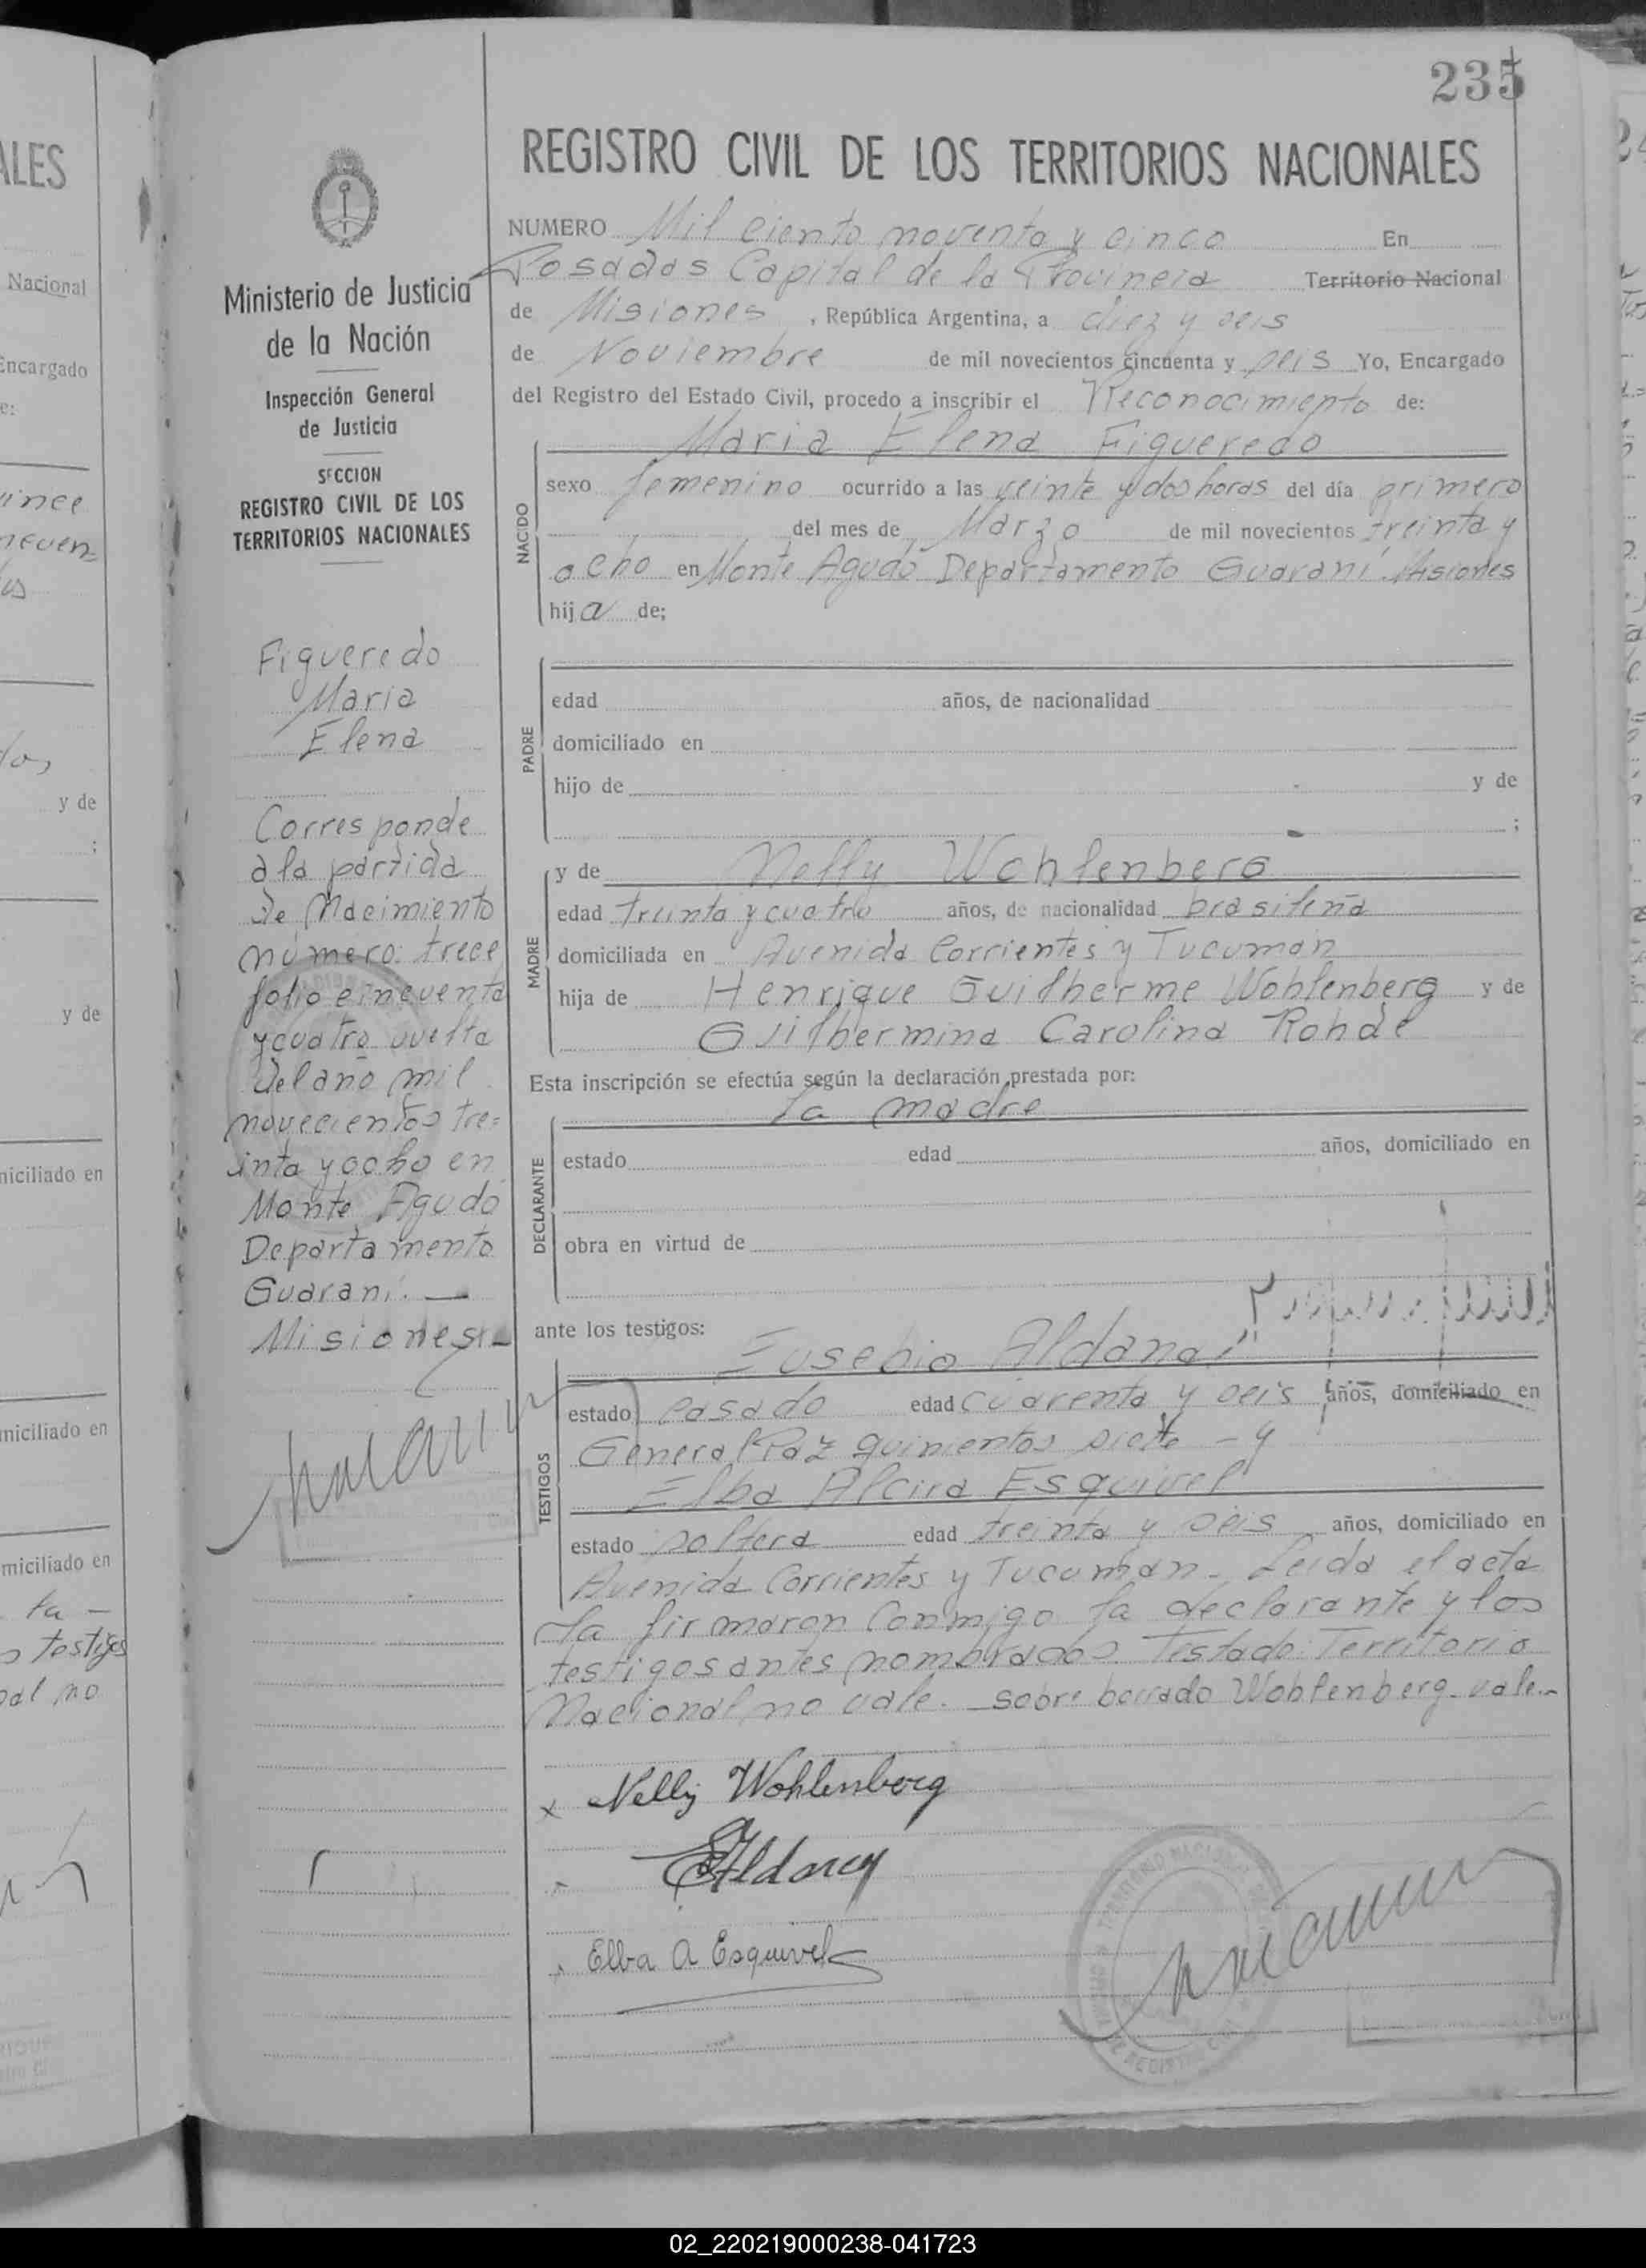 235
REGISTRO CIVIL DE LOS TERRITORIOS NACIONALES
NUMERO Mil ciento noventa y cinco En
Posadas Capital de la Provincia Territorio Nacional
de Misiones, República Argentina, a diez y seis
de Noviembre de mil novecientos cincuenta y seis Yo, Encargado
del Registro del Estado Civil, procedo a inscribir el Reconocimiento de:
NACIDO
Maria Elena Figueredo
sexo femenino ocurrido a las veinte y dos horas del día primero
del mes de Marzo de mil novecientos treinta y
ocho en Monte Agudo Departamento Guaraní Misiones
hija de;
PADRE
edad años, de nacionalidad
domiciliado en
hijo de y de
;
MADRE
y de Nelly Wohlenberg
edad treinta y cuatro años, de nacionalidad brasileña
domiciliada en Avenida Corrientes y Tucuman
hija de Henrique Guilherme Wohlenberg y de
Guilhermina Carolina Rohde
Esta inscripción se efectúa según la declaración prestada por:
DECLARANTE
la madre
estado edad años, domiciliado en
obra en virtud de
ante los testigos:
TESTIGOS
Eusebio Aldana
estado casado edad cuarenta y seis años, domiciliado en
General Paz quinientos siete - y
Elba Alcira Esquivel
estado soltera edad treinta y seis años, domiciliado en
Avenida Corrientes y Tucuman. Leida el acta
la firmaron conmigo la declarante y los
testigos antes nombrados. Testado: Territorio
Nacional no vale. sobre borrado Wohlenberg. vale.-
Nelly Wohlenberg
EAldana
Elba A Esquivel
Ministerio de Justicia
de la Nación
Inspección General
de Justicia
SECCION
REGISTRO CIVIL DE LOS
TERRITORIOS NACIONALES
Figueredo
Maria
Elena
Corresponde
a la partida
de Nacimiento
número: trece
folio cincuenta
y cuatro vuelta
del año mil
novecientos tre=
inta y ocho en
Monte Agudo
Departamento
Guaraní. —
Misiones.-
ALES
Nacional
Encargado
y de
y de
miciliado en
miciliado en
miciliado en
ta -
testigos
al no
02_220219000238-041723